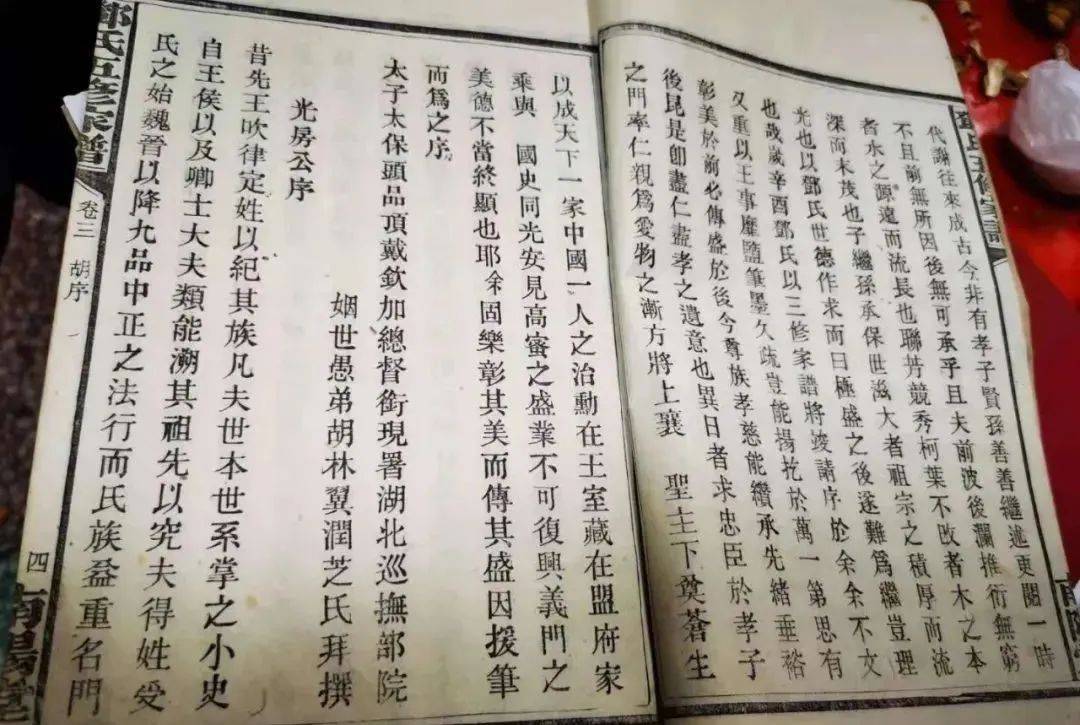 鄧氏五修家譜
代謝往來成古今非有孝子賢孫善善繼述更閱一時
不且前無所因後無可承乎且夫前波後瀾推衍無窮
者水之源遠而流長也聯芳競秀柯葉不改者木之本
深而末茂也子繼孫承保世滋大者祖宗之積厚而流
光也以鄧氏世德作求而曰極盛之後遂難為繼豈理
也哉歲辛酉鄧氏以三修家譜將竣請序於余余不文
又重以王事靡盬筆墨久疏豈能揚扢於萬一第思有
彰美於前必傳盛於後今尊族孝慈能纘承先緒垂裕
後昆是卽盡仁盡孝之遺意也異日者求忠臣於孝子
之門率仁親為愛物之漸方將上襄 聖主下奠蒼生
以成天下一家中國一人之治勳在王室藏在盟府家
乘與 國史同光安見高蜜之盛業不可復興義門之
美德不當終顯也耶余固樂彰其美而傳其盛因援筆
而爲之序
太子太保頭品頂戴欽加總督銜現署湖北巡撫部院
姻世愚弟胡林翼潤芝氏拜撰
光房公序
昔先王吹律定姓以紀其族凡夫世本世系掌之小史
自王侯以及卿士大夫類能溯其祖先以究夫得姓受
氏之始魏晉以降九品中正之法行而氏族益重名門
鄧氏五修家譜
卷三 胡序
四
南陽堂